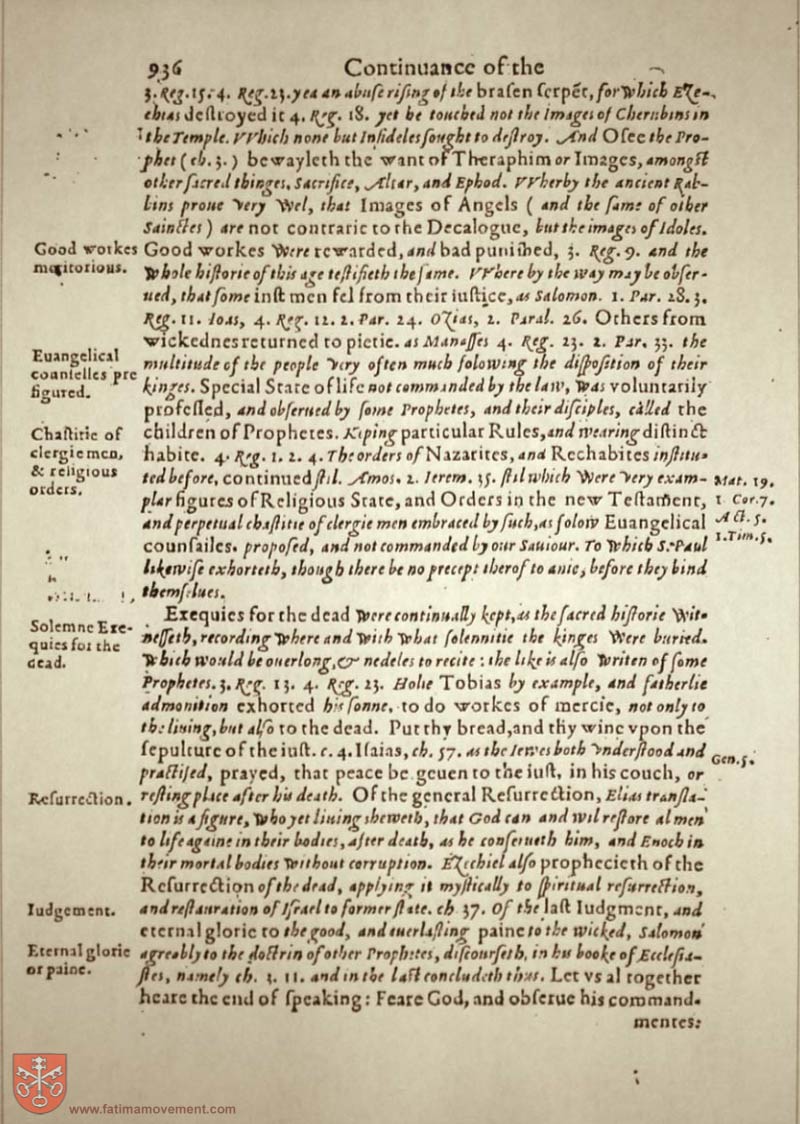 936 Continuance of the
3. Reg. 15. 4. Reg. 23. yea an abuſe riſing of the braſen ſerpẽt, for which Eze-
chias deſtroyed it 4. Reg. 18. yet he touched not the Images of Cherubins in
the Temple. VVhich none but Infideles ſought to deſtroy. And Oſee the Pro-
phet (ch. 3.) bewayleth the want of Theraphim or Images, amongſt
other ſacred thinges, Sacrifice, Altar, and Ephod. VVherby the ancient Rab-
bins proue very wel, that Images of Angels (and the ſame of other
Sainctes) are not contrarie to the Decalogue, but the images of Idoles.
Good workes were rewarded, and bad puniſhed, 3. Reg. 9. and the
whole hiſtorie of this age teſtifieth the ſame. VVhere by the way may be obſer-
ued, that ſome iuſt men fel from their iuſtice, as Salomon. 1. Par. 28. 3.
Reg. 11. Ioas, 4. Reg. 12. 2. Par. 24. Ozias, 2. Paral. 26. Others from
wickednes returned to pietie. as Manaſſes 4. Reg. 23. 2. Par. 33. the
multitude of the people very often much folowing the diſpoſition of their
kinges. Special State of life not commanded by the law, was voluntarily
profeſſed, and obſerued by ſome Prophetes, and their diſciples, called the
children of Prophetes. Kiping particular Rules, and wearing diſtinct
habite. 4. Reg. 1. 2. 4. The orders of Nazarites, and Rechabites inſtitu-
ted before, continued ſtil. Amos. 2. Ierem. 35. ſtil which were very exam-
plar figures of Religious State, and Orders in the new Teſtament,
and perpetual chaſtitie of clergie men embraced by ſuch, as folow Euangelical
counſailes. propoſed, and not commanded by our Sauiour. To which S. Paul
likewiſe exhorteth, though there be no precept therof to anie, before they bind
themſelues.
Exequies for the dead were continually kept, as the ſacred hiſtorie wit-
neſſeth, recording where and with what ſolennitie the kinges were buried.
which would be ouerlong, & nedeles to recite: the like is alſo writen of ſome
Prophetes. 3. Reg. 13. 4. Reg. 23. Holie Tobias by example, and fatherlie
admonition exhorted his ſonne, to do workes of mercie, not only to
the liuing, but alſo to the dead. Put thy bread, and thy wine vpon the
ſepulture of the iuſt. c. 4. Iſaias, ch. 57. as the Iewes both vnderſtood and
practiſed, prayed, that peace be geuen to the iuſt, in his couch, or
reſting place after his death. Of the general Reſurrection, Elias tranſla-
tion is a figure, who yet liuing sheweth, that God can and wil reſtore al men
to life againe in their bodies, after death, as he conſerueth him, and Enoch in
their mortal bodies without corruption. Ezechiel alſo prophecieth of the
Reſurrection of the dead, applying it myſtically to ſpiritual reſurrection,
and reſtauration of Iſrael to former ſtate. ch 37. Of the laſt Iudgment, and
eternal glorie to the good, and euerlaſting paine to the wicked, Salomon
agreably to the doctrin of other Prophetes, diſcourſeth, in his booke of Eccleſia-
ſtes, namely ch. 3. 11. and in the laſt concludeth thus. Let vs al together
heare the end of ſpeaking: Feare God, and obſerue his command-
mentes:
Good workes
meritorious.
Euangelical
counſelles pre
figured.
Chaſtitie of
clergie men,
& religious
orders.
Solemne Exe-
quies for the
dead.
Reſurrection.
Iudgement.
Eternal glorie
or paine.
Mat. 19.
1 Cor. 7.
Act. 5.
1. Tim. 5.
Gen. 5.
www.fatimamovement.com